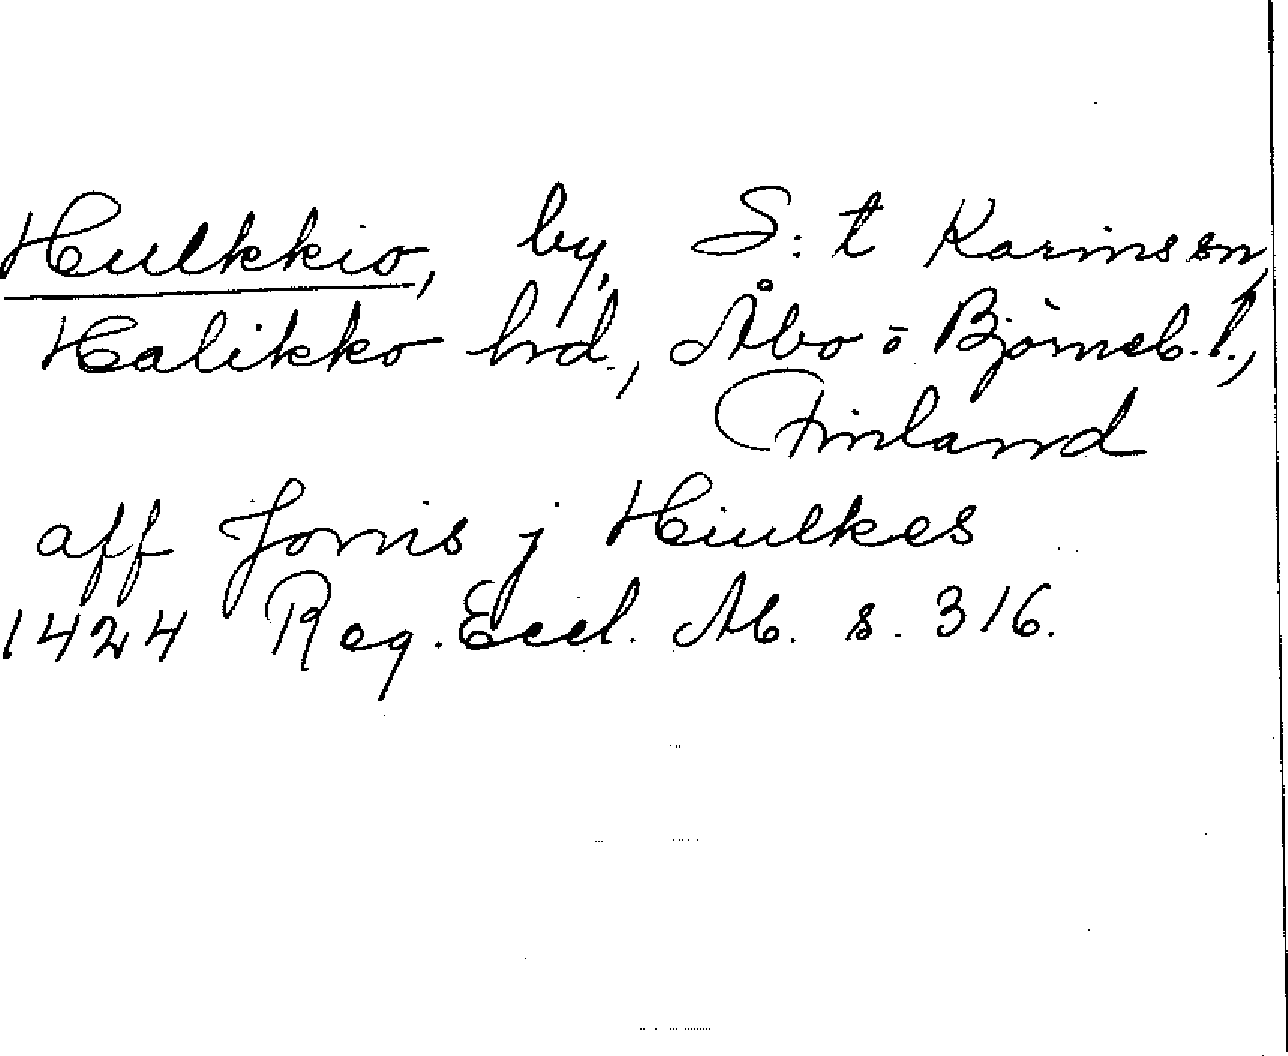 Hulkkio, by, S:t Karins sn,
Halikko hd., Åbo o Björneb. l.,
Finland
aff Jönis j Hiulkes
1424 Reg. Eccl. Ab. s. 316.